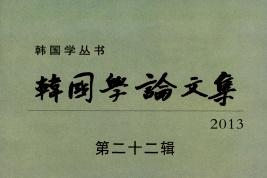 韩国学丛书
韓國學論文集
2013
第二十二辑